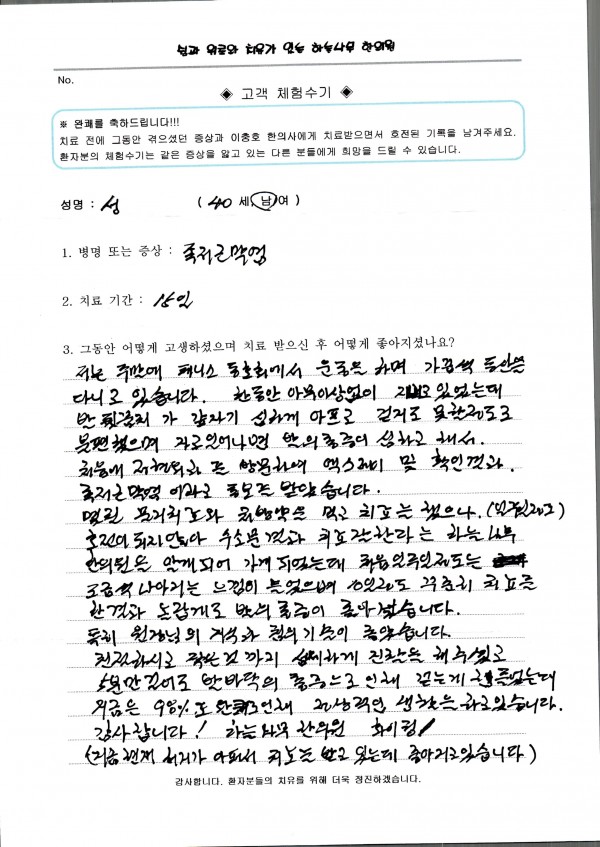 No.
◈ 고객 체험수기 ◈
※ 완쾌를 축하드립니다!!!
치료 전에 그동안 겪으셨던 증상과 이충호 한의사에게 치료받으면서 호전된 기록을 남겨주세요.
환자분의 체험수기는 같은 증상을 앓고 있는 다른 분들에게 희망을 드릴 수 있습니다.
성명 : 성 ( 40 세, 남/여 )
1. 병명 또는 증상 : 족저근막염
2. 치료 기간 : 15일
3. 그동안 어떻게 고생하셨으며 치료 받으신 후 어떻게 좋아지셨나요?
저는 주말에 테니스 동호회에서 운동을 하며 가끔씩 등산을
다니고 있습니다. 한동안 아무이상없이 지내고 있었는데
반 갑자기 심하게 아프고 걷지도 못할정도로
불편했으며 자고일어나면 발의통증이 심하고 해서.
처음에 정형외과 를 방문하여 엑스레이 및 확인결과.
족저근막염 이라고 통보를 받았습니다.
물리치료와 처방약을 먹고 치료는 했으나.
호전이 되지않아 수소문결과 치료잘한다라는 하늘나무
한의원을 알게되어 가게되었는데 처음 일주일정도는
조금씩 나아지는 느낌이 들었으며 정도 꾸준히 치료를
한결과 놀랍게도 발의 통증이 좋아졌습니다.
특히 원장님의 침의기술이 좋았습니다.
친절하시고 작은것 까지 섬세하게 진찰을 해주셨고
5분만 걸어도 발바닥의 통증으로 인해 걷는게 힘들었는데
지금은 98%로 완쾌로인해 정상적인 생활을 하고있습니다.
감사합니다! 하늘나무 한의원 화이팅!
(지금현재 허리가 아파서 치료를 받고 있는데 좋아지고있습니다)
감사합니다. 환자분들의 치유를 위해 더욱 정진하겠습니다.